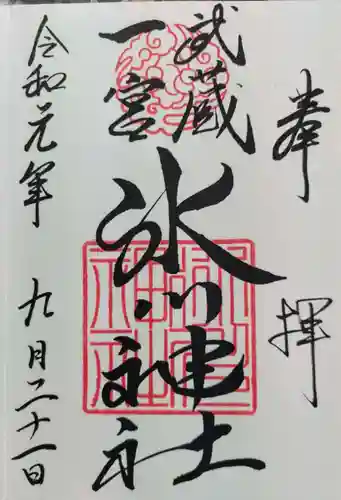 奉拝
武蔵
一宮
氷川神社
令和元年 九月二十一日